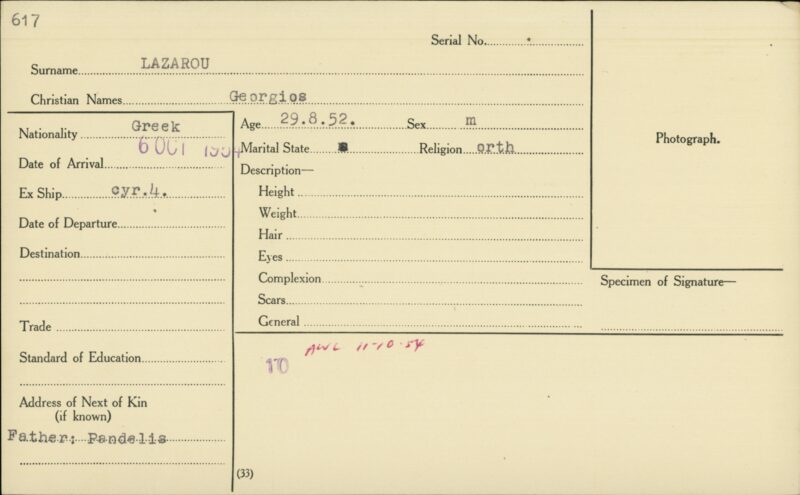 617
Serial No.
Surname LAZAROU
Christian Names Georgios
Nationality Greek
Date of Arrival 6 OCT 1954
Ex Ship cyr.4.
Date of Departure
Destination
Trade
Standard of Education
Address of Next of Kin
(if known)
Father: Pandelis
Age 29.8.52. Sex m
Marital State s Religion orth
Description—
Height
Weight
Hair
Eyes
Complexion
Scars
General
Photograph.
Specimen of Signature—
AWL 11-10-54
170
(33)